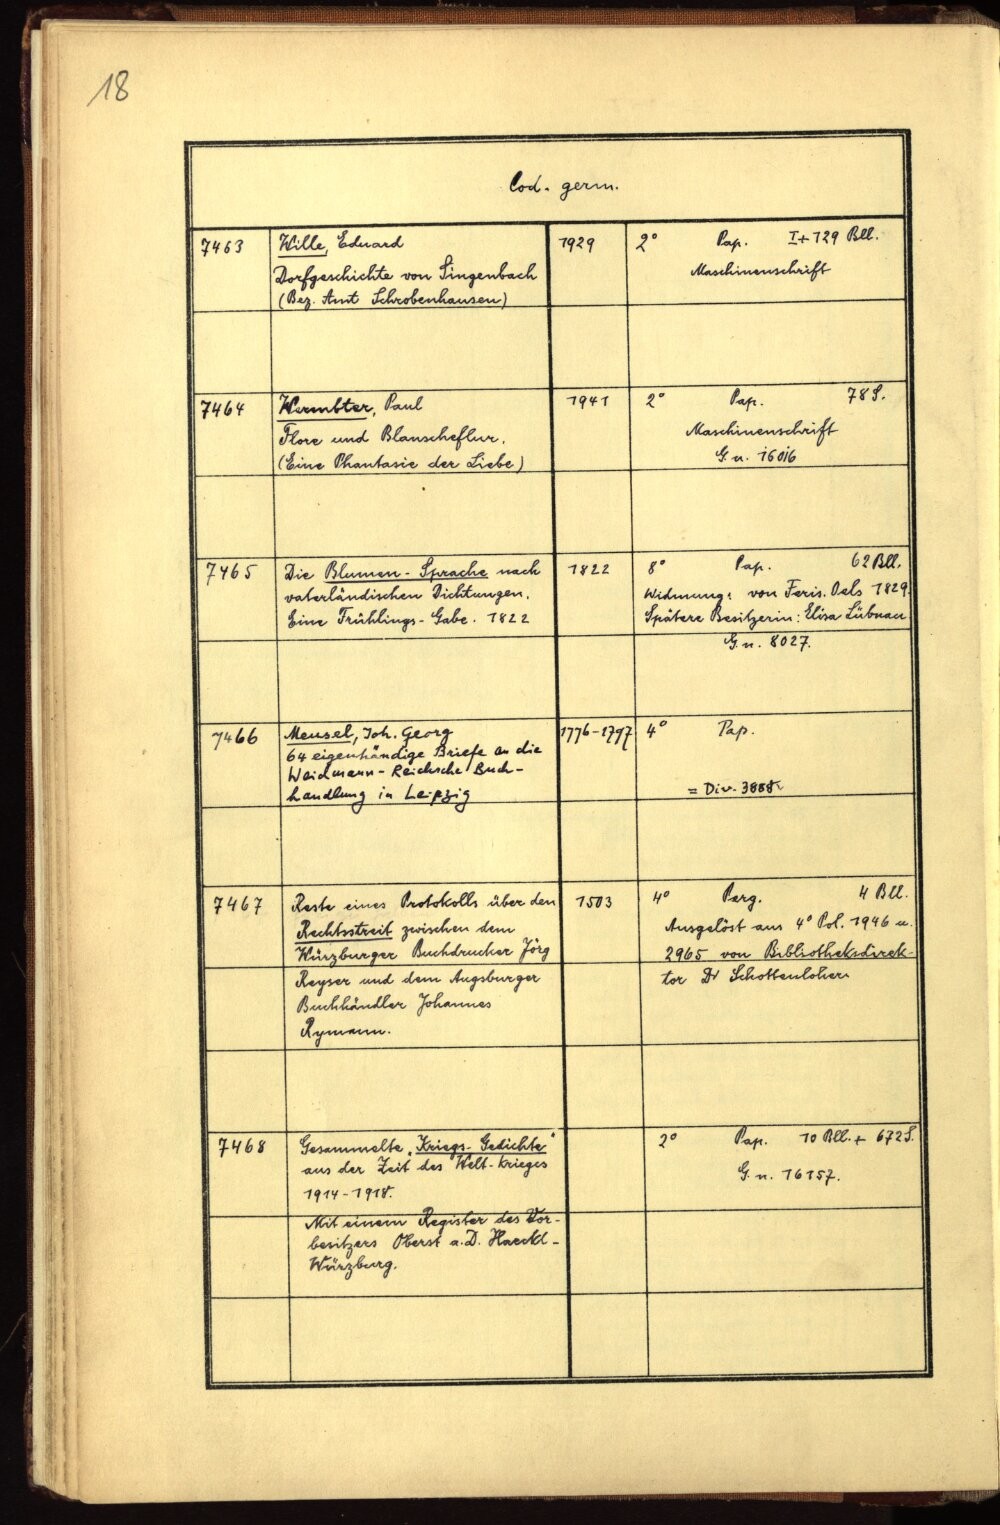 18
Cod. germ.
7463 Wille, Eduard 1929 2° Pap. I+129 Bll.
Dorfgeschichte von Singenbach Maschinenschrift
(Bez. Amt Schrobenhausen)
7464 Wermbter, Paul 1941 2° Pap. 78 S.
Flore und Blanscheflur. Maschinenschrift
(Eine Phantasie der Liebe) G. n. 16016
7465 Die Blumen-Sprache nach 1822 8° Pap. 62 Bll.
vaterländischen Dichtungen. Widmung: von Feris. Oels 1829.
Eine Frühlings-Gabe. 1822 Spätere Besitzerin: Elisa Lübnau
G. n. 8027.
7466 Meusel, Joh. Georg 1776-1797 4° Pap.
64 eigenhändige Briefe an die
Weidmann-Reichsche Buch-
handlung in Leipzig = Div. 3888
7467 Reste eines Protokolls über den 1503 4° Perg. 4 Bll.
Rechtsstreit zwischen dem Ausgelöst aus 4° Pol. 1946 u.
Würzburger Buchdrucker Jörg 2965 von Bibliotheksdirek-
Reyser und dem Augsburger tor Dr Schottenloher
Buchhändler Johannes
Rymann.
7468 Gesammelte „Kriegs-Gedichte" 2° Pap. 10 Bll. + 672 S.
aus der Zeit des Welt-Krieges G. n. 16157.
1914-1918.
Mit einem Register des Vor-
besitzers Oberst a. D. Haeckl-
Würzburg.